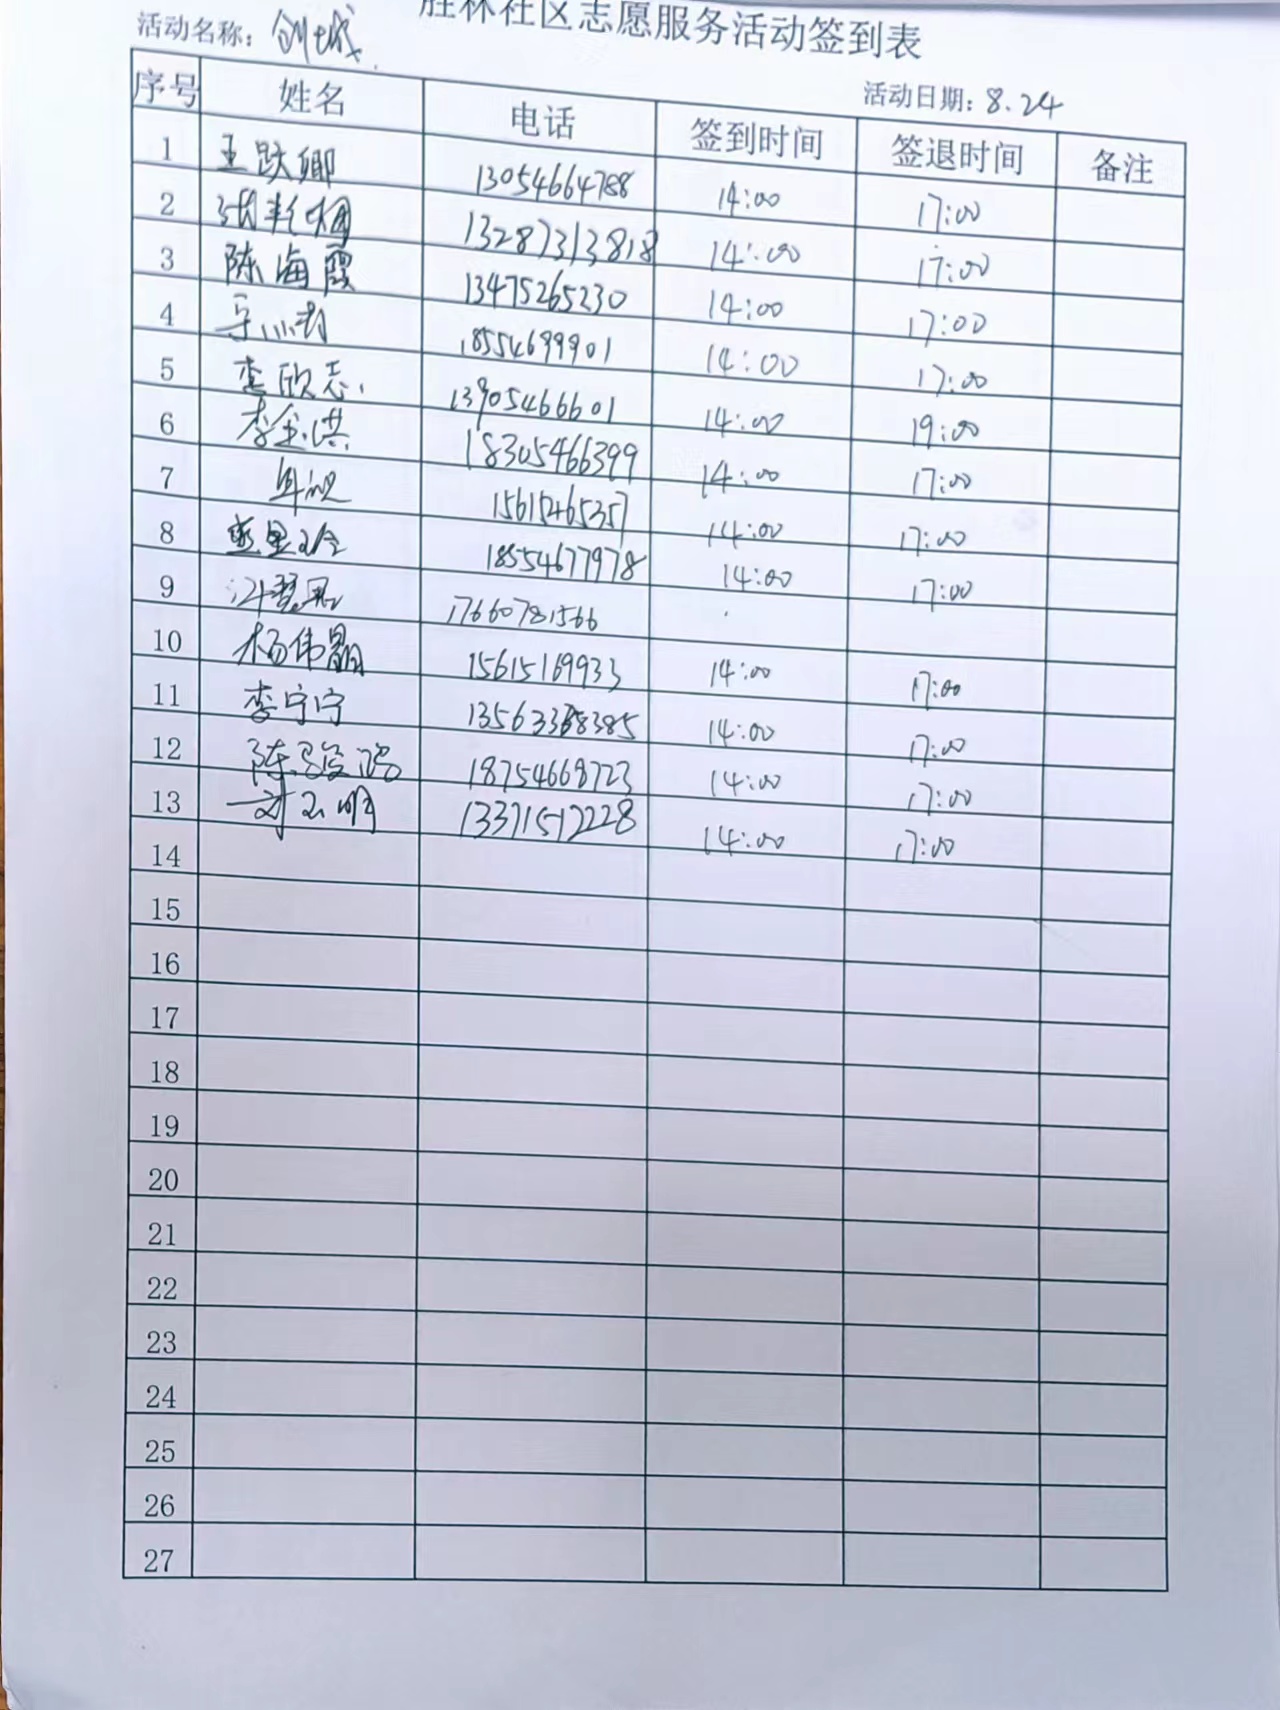 胜林社区志愿服务活动签到表
活动名称：创城
活动日期：8.24
序号 姓名 电话 签到时间 签退时间 备注
1 王跃卿 13054664788 14:00 17:00
2 13287313818 14:00 17:00
3 陈海霞 13475265230 14:00 17:00
4 18554699901 14:00 17:00
5 李欣志 13905466601 14:00 19:00
6 李金洪 18305466399 14:00 17:00
7 15615465357 14:00 17:00
8 18554677978 14:00 17:00
9 17660781566
10 杨伟 15615169933 14:00 17:00
11 李宁宁 14:00 17:00
12 陈 18754668723 14:00 17:00
13 刘玉明 13371517228 14:00 17:00
14
15
16
17
18
19
20
21
22
23
24
25
26
27